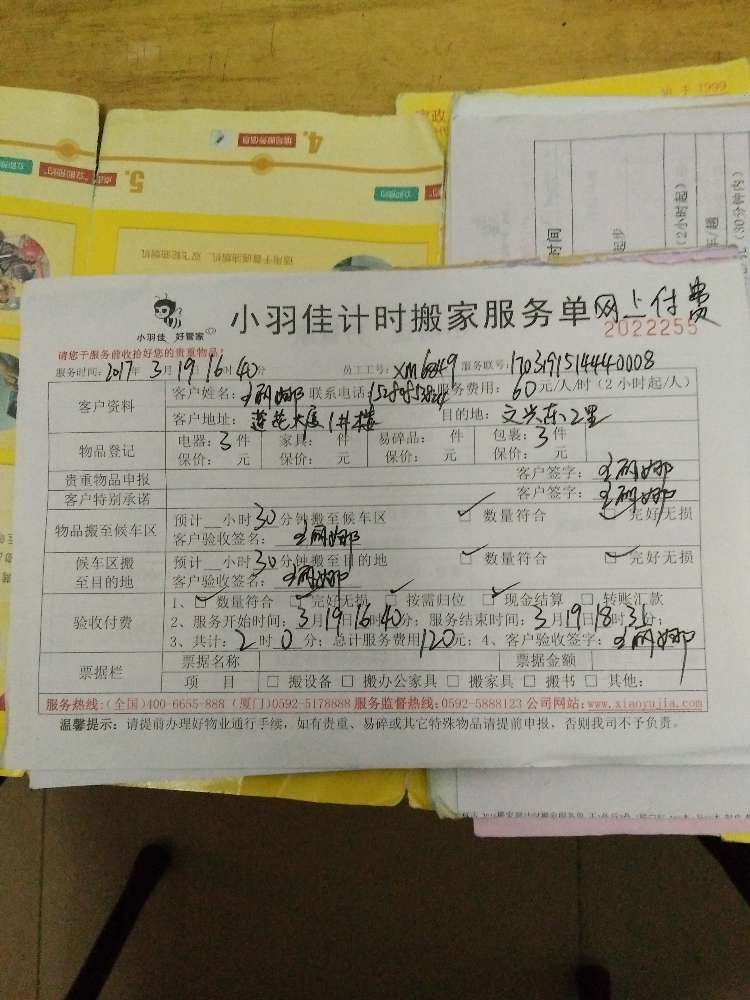 始于1999
家政
4. 填写服务信息
5.
立即预约
点击"立即预约"
立即预约
适用于普通油烟机、双飞轮油烟机
时间
起步
(2小时起)
(30分钟内)
小羽佳 好管家
小羽佳计时搬家服务单 网上付费
2022255
请您于服务前收拾好您的贵重物品!
服务时间: 2017年 3月 19日 16时 40分 员工工号: XM6849 服务联号: 170319151444 0008
客户资料 客户姓名: 王丽娜 联系电话: 服务费用: 60元/人/时(2小时起/人)
客户地址: 莲花大厦 目的地: 文兴东二里
物品登记 电器: 3件 家具: 件 易碎品: 件 包裹: 3件
保价: 元 保价: 元 保价: 元 保价: 元
贵重物品申报 客户签字: 王丽娜
客户特别承诺 客户签字: 王丽娜
物品搬至候车区 预计__小时30分钟搬至候车区 ☑ 数量符合 ☑ 完好无损
客户验收签名: 王丽娜
候车区搬至目的地 预计__小时30分钟搬至目的地 ☑ 数量符合 ☑ 完好无损
客户验收签名: 王丽娜
验收付费 1、☑ 数量符合 ☑ 完好无损 ☑ 按需归位 ☑ 现金结算 □ 转账汇款
2、服务开始时间: 3月19日16时40分; 服务结束时间: 3月19日18时31分;
3、共计: 2时0分; 总计服务费用120元; 4、客户验收签字: 王丽娜
票据栏 票据名称 票据金额
项 目 □ 搬设备 □ 搬办公家具 □ 搬家具 □ 搬书 □ 其他:
服务热线:(全国)400-6655-888 (厦门)0592-5178888 服务监督热线:0592-5888123 公司网站:www.xiaoyujia.com
温馨提示: 请提前办理好物业通行手续, 如有贵重、易碎或其它特殊物品请提前申报, 否则我司不予负责。